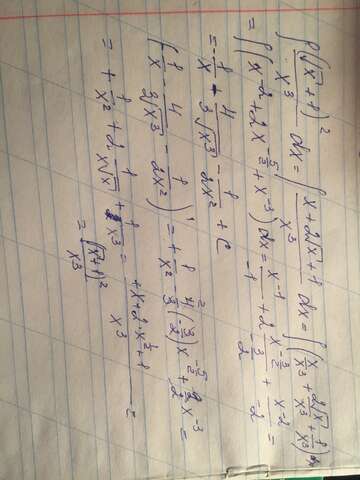 ∫ (√x + 1)² / x³ dx = ∫ (x + 2√x + 1) / x³ dx = ∫ (x/x³ + 2√x/x³ + 1/x³) dx
= ∫ (x⁻² + 2x^(-5/2) + x⁻³) dx = x⁻¹/-1 + 2 x^(-3/2)/(-3/2) + x⁻²/-2 =
= -1/x - 4/(3√x³) - 1/(2x²) + C
(-1/x - 4/(3√x³) - 1/(2x²))' = +1/x² - 4/3 (-3/2) x^(-5/2) + 2/2 x⁻³ =
= + 1/x² + 2 1/(x√x) + 1/x³ = (+x + 2·x^(1/2) + 1) / x³ =
= (√x + 1)² / x³